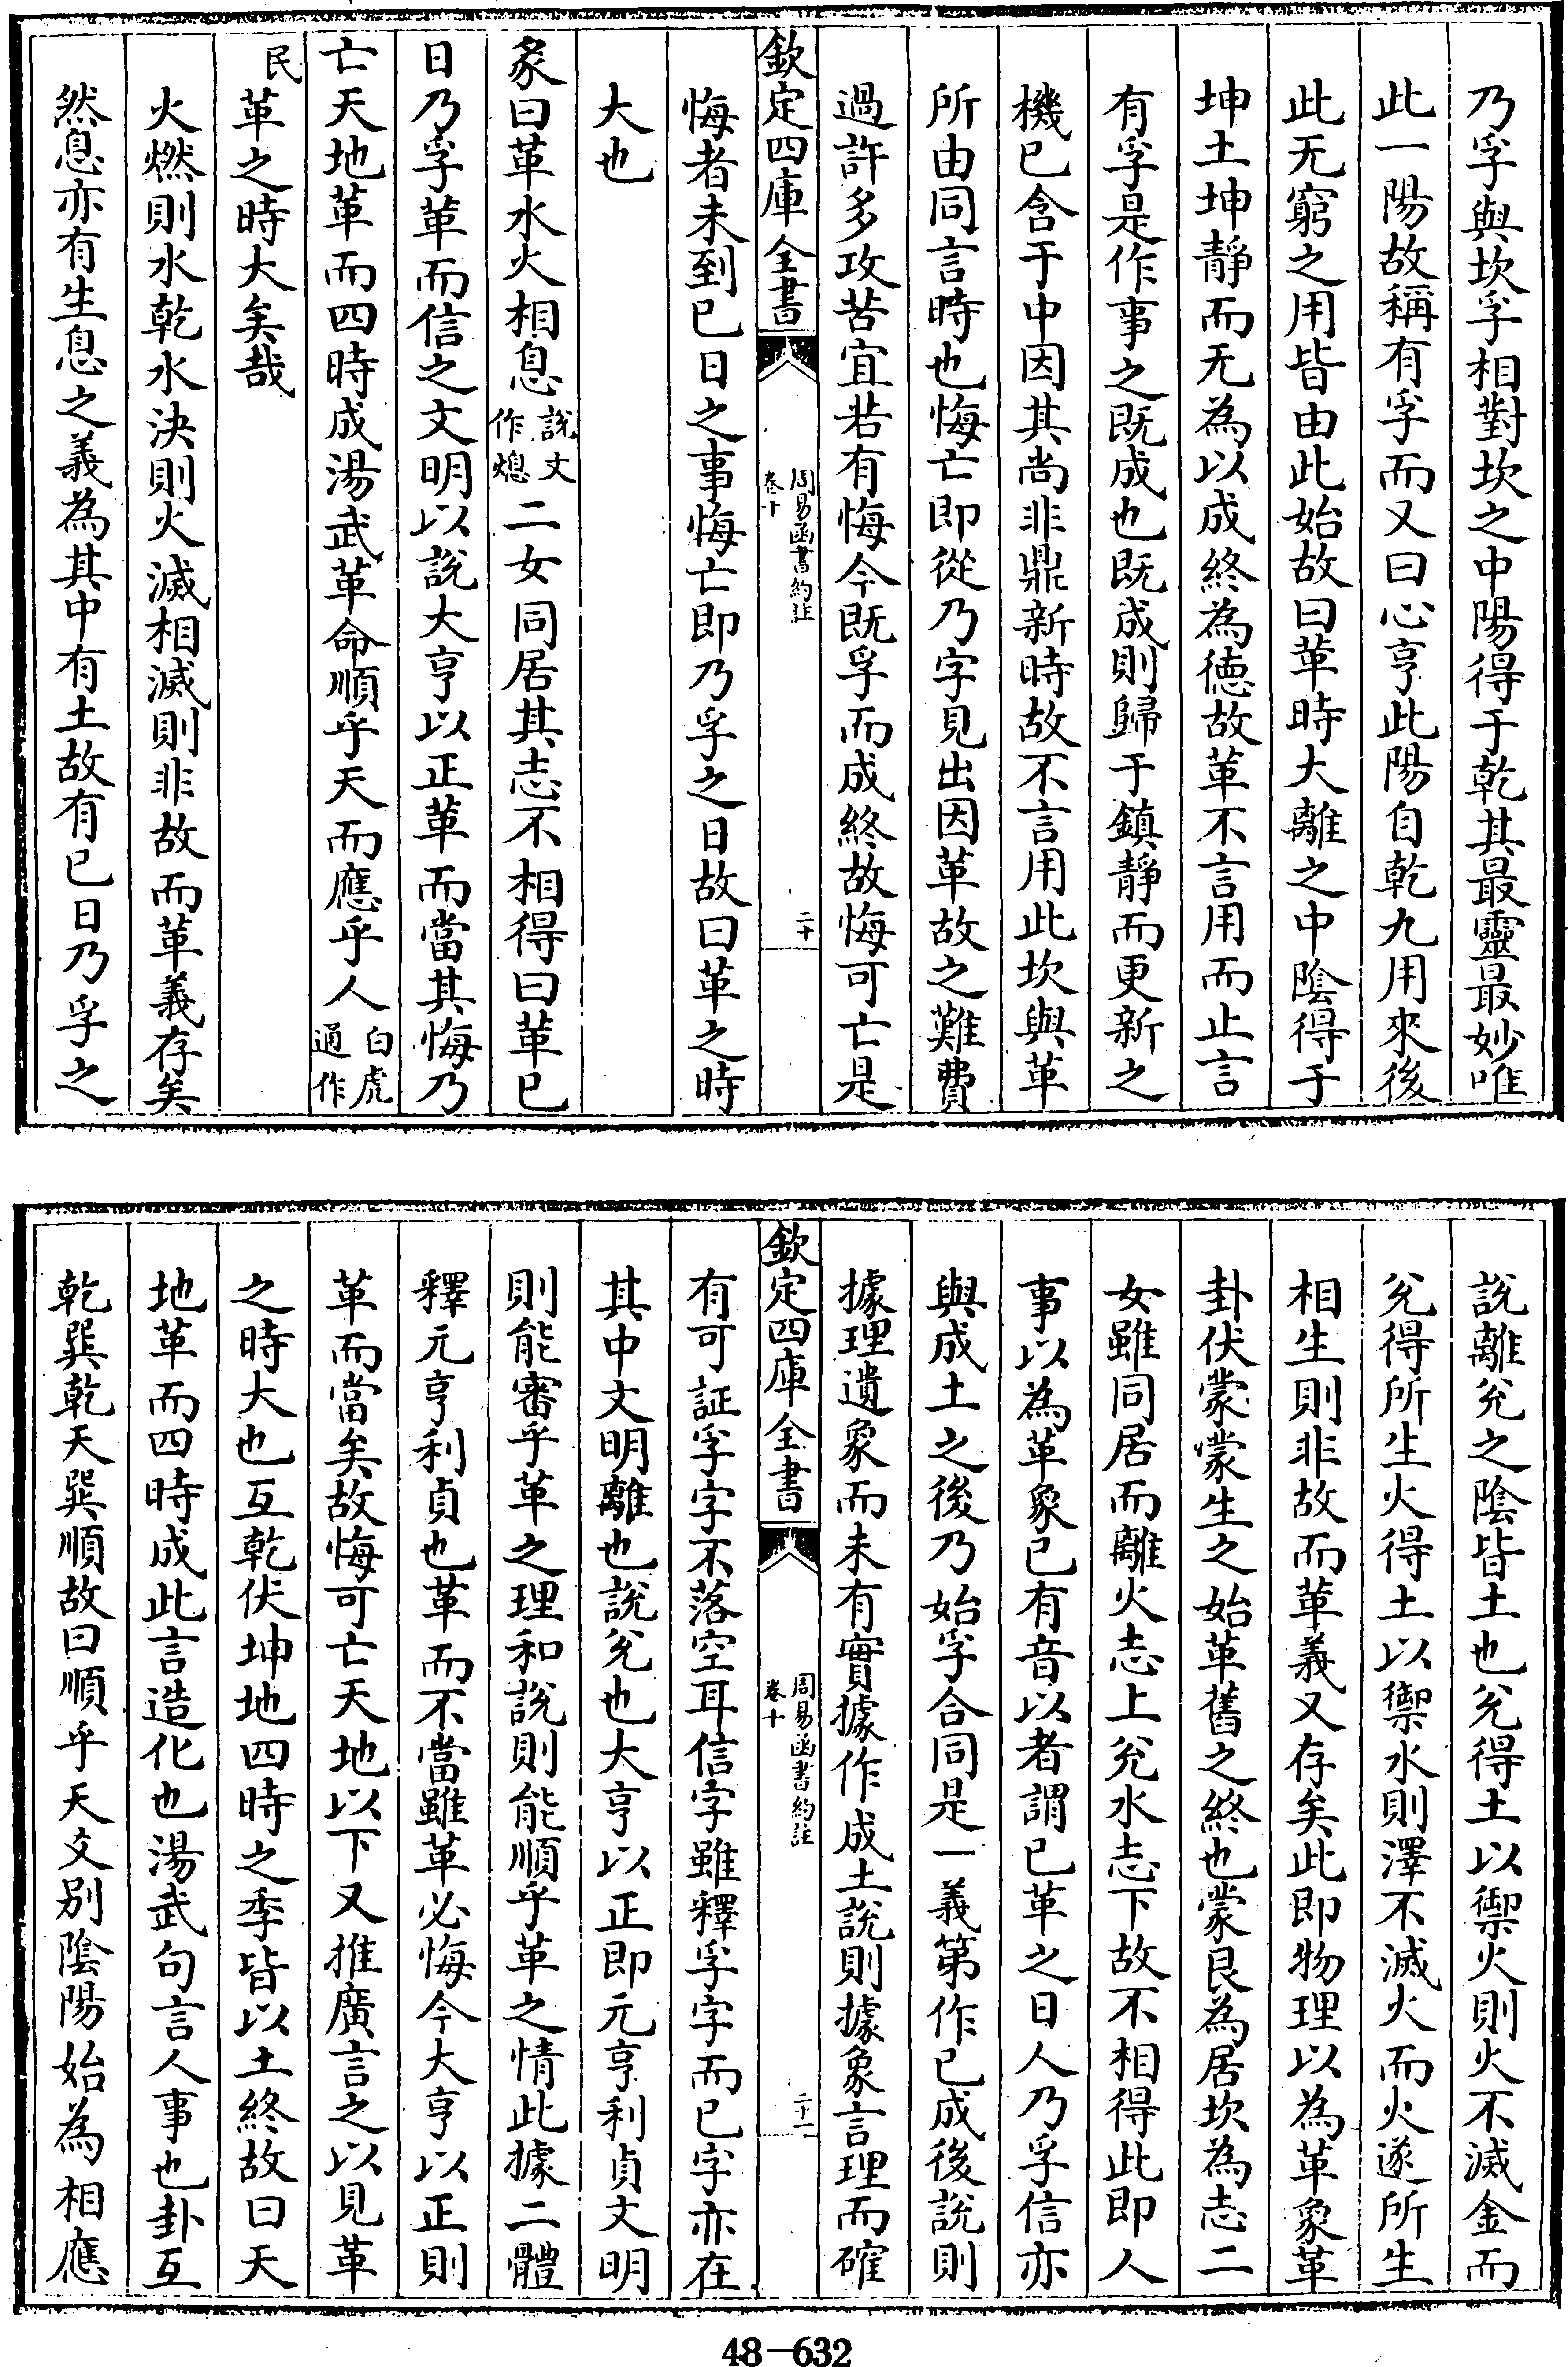 乃孚與坎孚相對坎之中陽得于乾其最靈最妙唯
此一陽故稱有孚而又曰心亨此陽自乾九用來後
此无窮之用皆由此始故曰革時大離之中陰得于
坤土坤靜而无為以成終為德故革不言用而止言
有孚是作事之既成也既成則歸于鎮靜而更新之
機已含于中因其尚非鼎新時故不言用此坎與革
所由同言時也悔亡即從乃字見出因革故之難費
過許多攻苦宜若有悔今既孚而成終故悔可亡是
欽定四庫全書
周易函書約註
卷十
二十
悔者未到已日之事悔亡即乃孚之日故曰革之時
大也
彖曰革水火相息說文作熄二女同居其志不相得曰革已
日乃孚革而信之文明以說大亨以正革而當其悔乃
亡天地革而四時成湯武革命順乎天而應乎人白虎通作
民革之時大矣哉
火燃則水乾水決則火滅相滅則非故而革義存矣
然息亦有生息之義為其中有土故有已日乃孚之
說離兊之陰皆土也兊得土以禦火則火不滅金而
兊得所生火得土以禦水則澤不滅火而火遂所生
相生則非故而革義又存矣此即物理以為革象革
卦伏蒙蒙生之始革舊之終也蒙艮為居坎為志二
女雖同居而離火志上兊水志下故不相得此即人
事以為革象已有音以者謂已革之日人乃孚信亦
與成土之後乃始孚合同是一義第作已成後說則
據理遺象而未有實據作成土說則據象言理而確
欽定四庫全書
周易函書約註
卷十
二十一
有可証孚字不落空耳信字雖釋孚字而已字亦在
其中文明離也說兊也大亨以正即元亨利貞文明
則能審乎革之理和說則能順乎革之情此據二體
釋元亨利貞也革而不當雖革必悔今大亨以正則
革而當矣故悔可亡天地以下又推廣言之以見革
之時大也互乾伏坤地四時之季皆以土終故曰天
地革而四時成此言造化也湯武句言人事也卦互
乾巽乾天巽順故曰順乎天交别陰陽始為相應
48-632